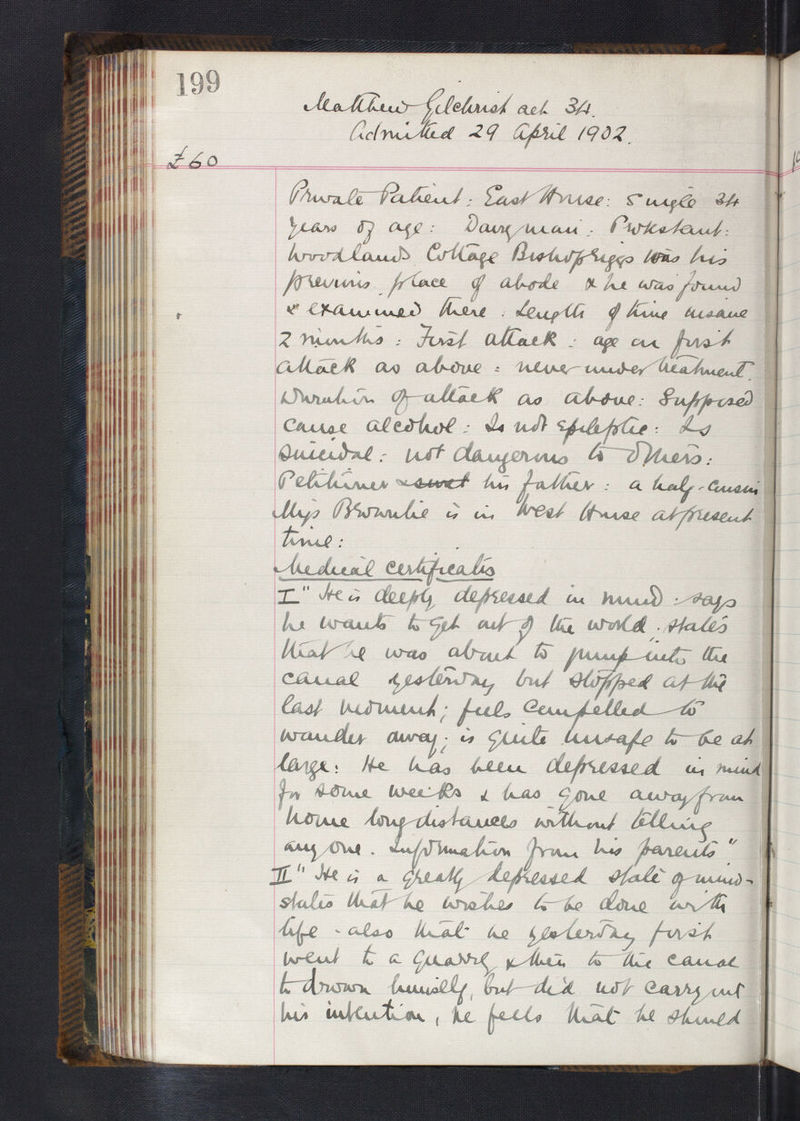 199
Matthew Gilchrist aet 34.
Admitted 29 April 1902.
£60
Private Patient: East House: Single 34
years of age: Dairyman: Protestant:
Woodlands Cottage Bishopbriggs was his
previous place of abode & he was found
& examined there: Length of time insane
2 months: First attack: age on first
attack as above: never under treatment.
Duration of attack as above: Supposed
cause alcohol: Is not epileptic: Is
Suicidal: not dangerous to others:
Petitioner his father: a half-cousin
Miss Brownlie is in West House at present
time:
Medical Certificates
I " He is deeply depressed in mind: says
he wants to get out of the world. States
that he was about to jump into the
canal yesterday but stopped at the
last moment; feels compelled to
wander away; is quite unsafe to be at
large: He has been depressed in mind
for some weeks & has gone away from
home long distances without telling
any one. Information from his parents"
II " He is a greatly depressed state of mind-
states that he wishes to be done with
life - also that he yesterday first
went to a quarry & then to the canal
to drown himself, but did not carry out
his intention, he feels that he should